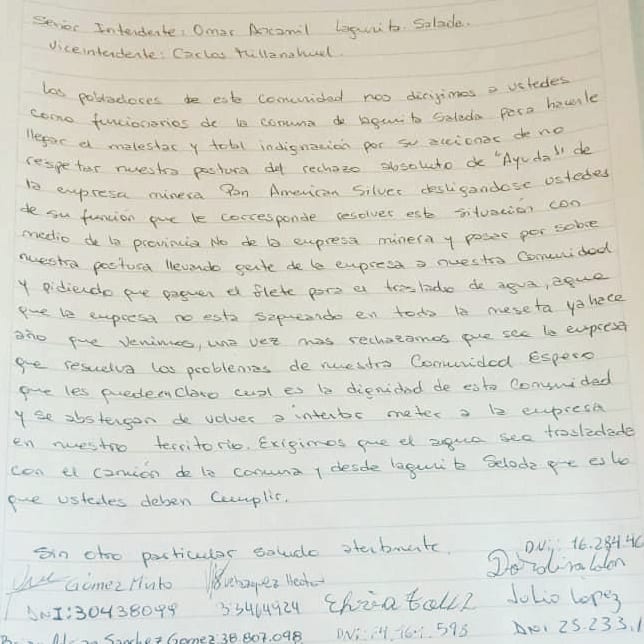 Señor Intendente: Omar Ancamil Lagunita Salada.
Viceintendente: Carlos Millanahuel.
Los pobladores de esta comunidad nos dirigimos a ustedes
como funcionarios de la comuna de lagunita Salada para hacerle
llegar el malestar y total indignación por su accionar de no
respetar nuestra postura del rechazo absoluto de "Ayuda" de
la empresa minera Pan American Silver desligandose ustedes
de su función que le corresponde resolver esta situación con
medio de la provincia No de la empresa minera y pasar por sobre
nuestra postura llevando gente de la empresa a nuestra Comunidad
y pidiendo que paguen el flete para el traslado de agua, agua
que la empresa no esta saqueando en toda la meseta ya hace
año que venimos, una vez mas rechazamos que sea la empresa
que resuelva los problemas de nuestra Comunidad Espero
que les quede en claro cual es la dignidad de esta Comunidad
y se abstengan de volver a intentar meter a la empresa
en nuestro territorio. Exigimos que el agua sea trasladada
con el camión de la comuna y desde lagunita Salada que es lo
que ustedes deben Cumplir.
Sin otro particular saludo atentamente.
DNI: 16.284.46
Gimez Hinto
Hector
Julio Lopez
DNI: 30438099
33464924
DNI 25.233
Sanchez Gomez 38.807.098